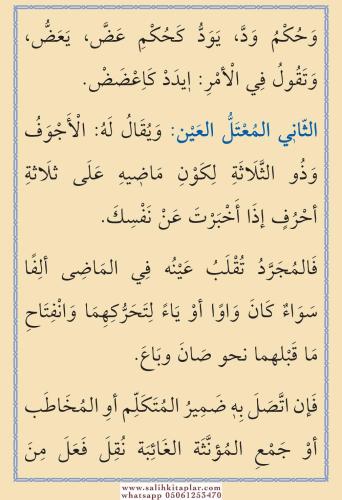 وَحُكْمُ وَدَّ، يَوَدُّ كَحُكْمِ عَضَّ، يَعَضُّ،
وَتَقُولُ فِي الْأَمْرِ: اٖيدَدْ كَاِعْضَضْ.
الثَّانٖي الْمُعْتَلُّ العَيْنِ: وَيُقَالُ لَهُ: الْأَجْوَفُ
وَذُو الثَّلَاثَةِ لِكَوْنِ مَاضٖيهِ عَلَى ثلَاثَةِ
أحْرُفٍ إذَا أَخْبَرْتَ عَنْ نَفْسِكَ.
فَالمُجَرَّدُ تُقْلَبُ عَيْنُه فِي المَاضِى ألِفًا
سَوَاءٌ كَانَ وَاوًا أوْ يَاءً لِتَحَرُّكِهِمَا وَانْفِتَاحِ
مَا قَبْلهما نحو صَانَ وبَاعَ.
فَإن اتَّصَلَ بِهٖ ضَمِيرُ المُتَكَلِّم أوِ المُخَاطَب
أوْ جَمْعِ المُؤنَّثَة الغَائِبَة نُقِلَ فَعَلَ مِنَ
www.salihkitaplar.com
whatsapp 05061253470